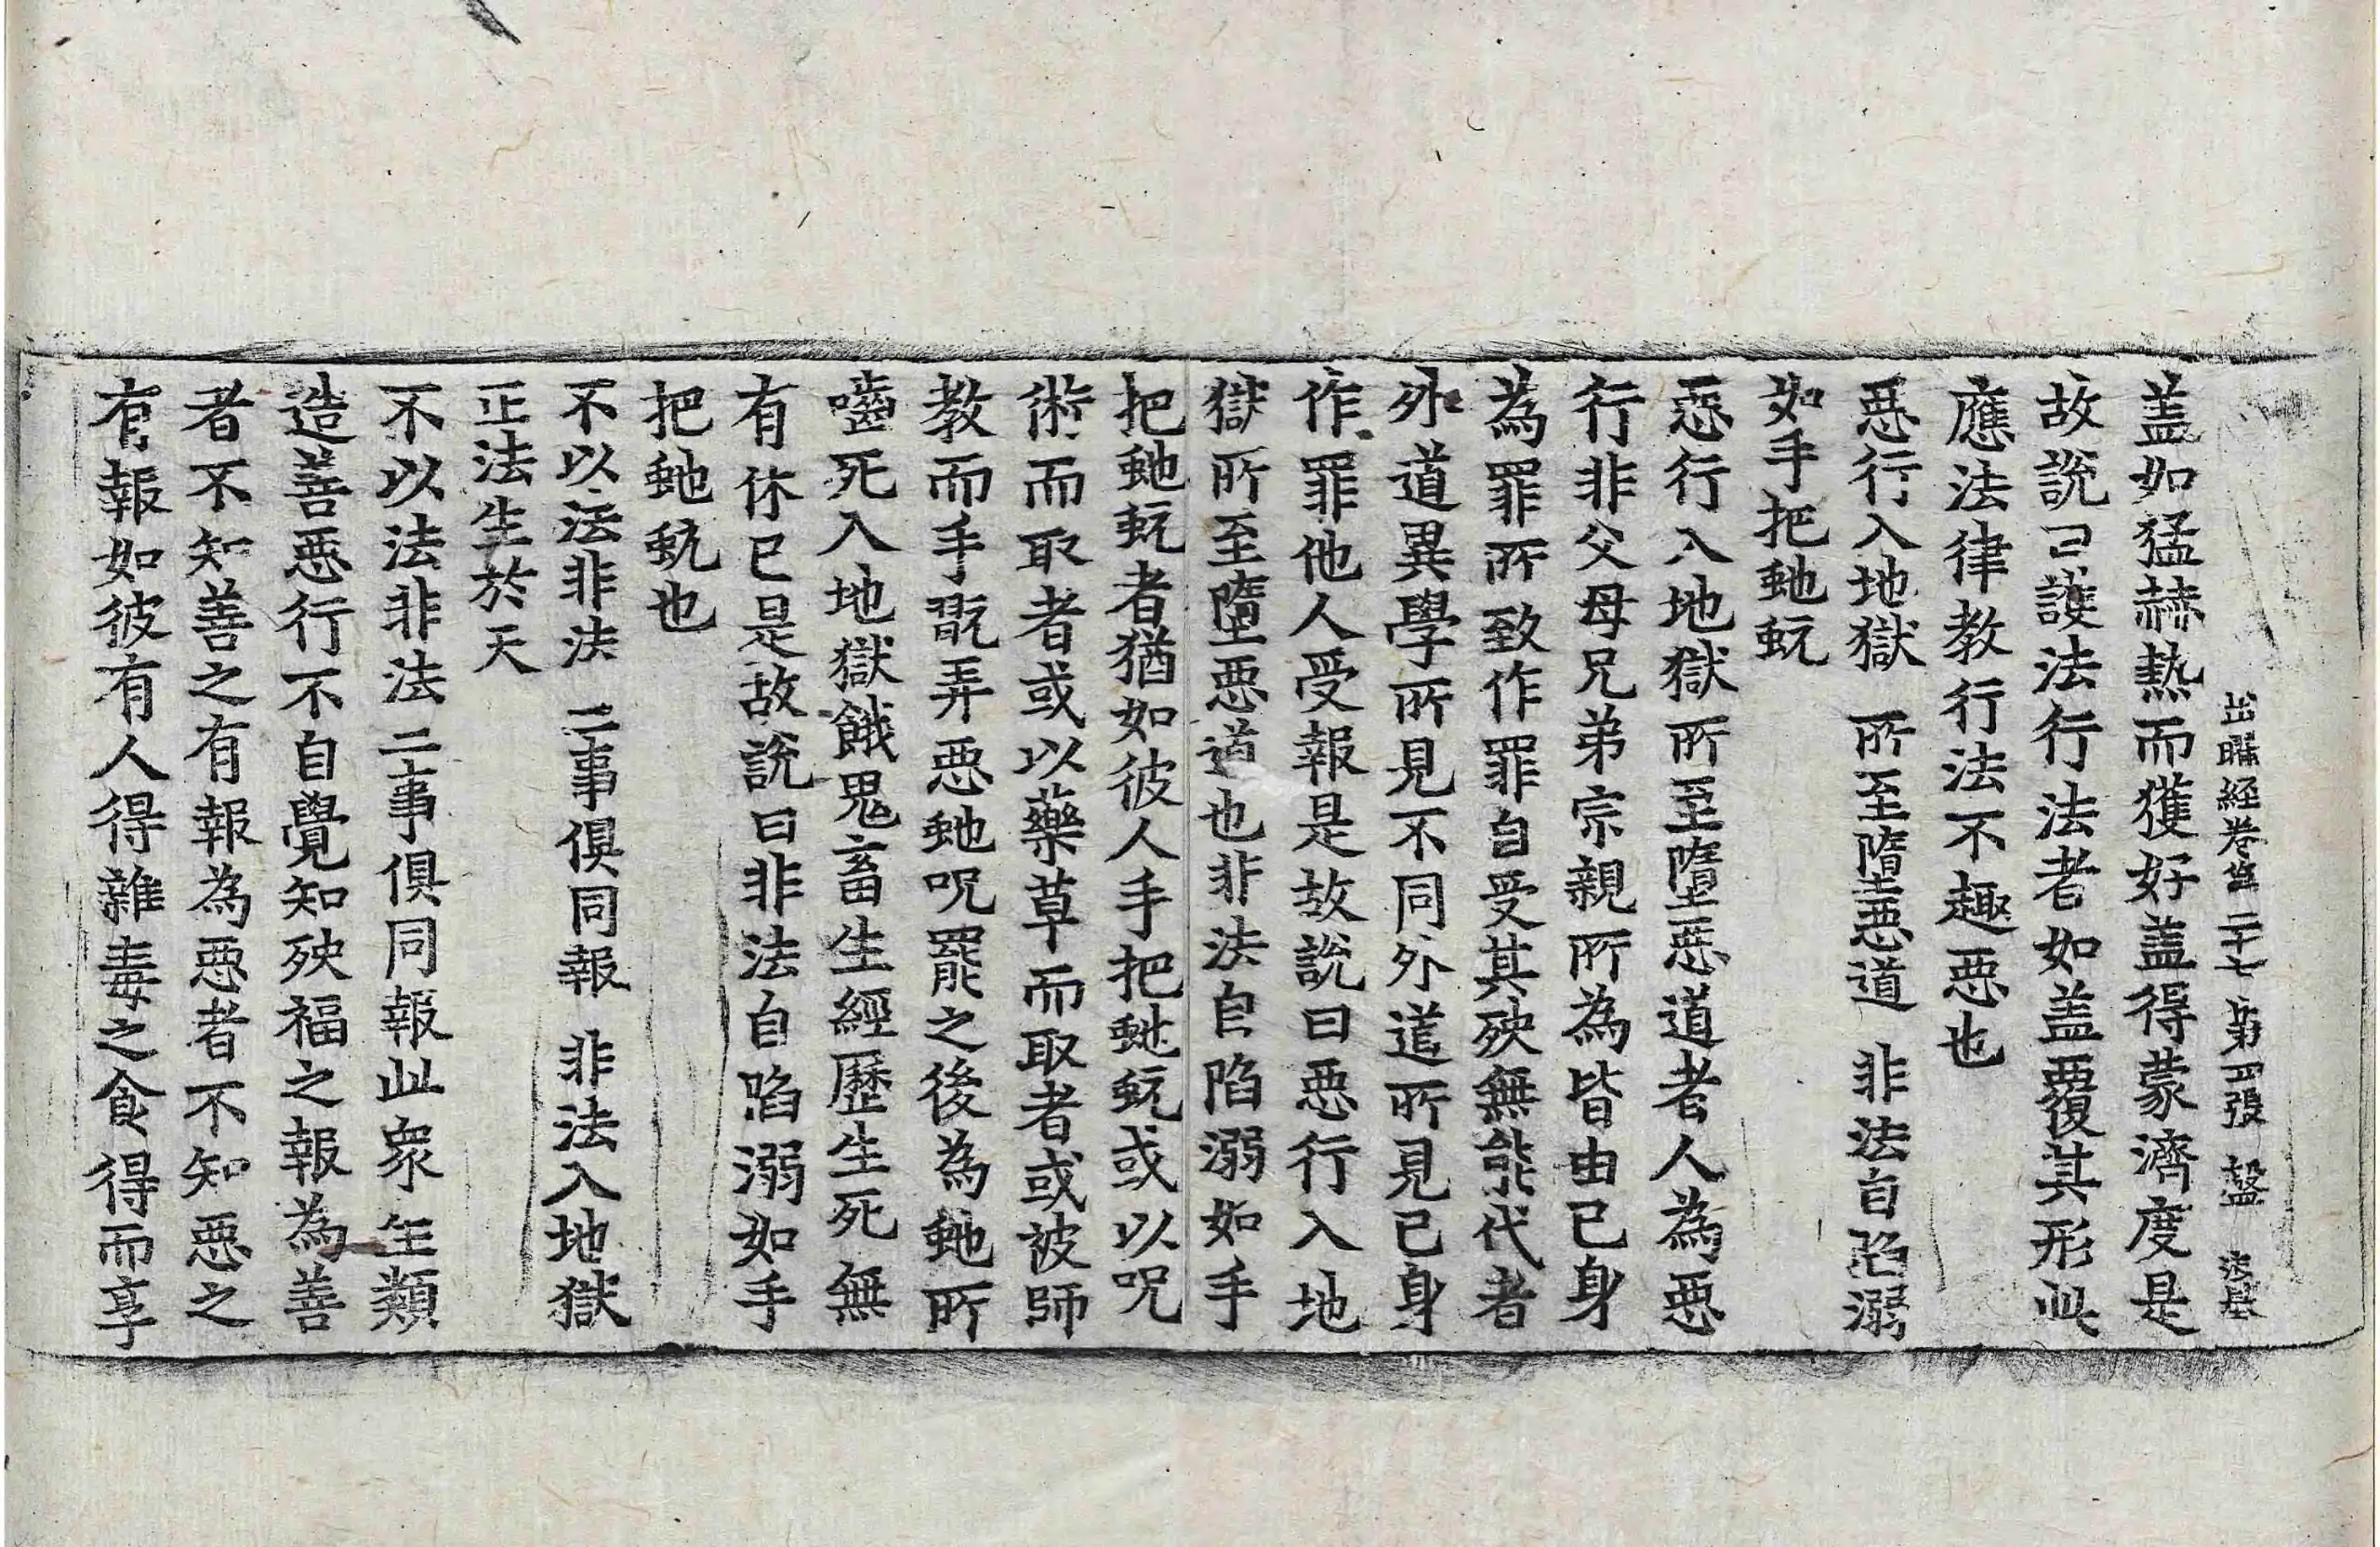 出曜経卷第二十七 第四張 盤
盖如猛赫熱而獲好盖得蒙濟度是
故說已護法行法者如盖覆其形此
應法律教行法不趣惡也
惡行入地獄 所至墮惡道 非法自陷溺
如手把虵蚖
惡行入地獄所至墮惡道者人為惡
行非父母兄弟宗親所為皆由已身
為罪所致作罪自受其殃無能代者
外道異學所見不同外道所見已身
作罪他人受報是故說曰惡行入地
獄所至墮惡道也非法自陷溺如手
把虵蚖者猶如彼人手把虵蚖或以呪
術而取者或以藥草而取者或被師
教而手翫弄惡虵呪罷之後為虵所
嚙死入地獄餓鬼畜生經歷生死無
有休已是故說曰非法自陷溺如手
把虵蚖也
不以法非法 二事俱同報 非法入地獄
正法生於天
不以法非法二事俱同報此衆生類
造善惡行不自覺知殃福之報為善
者不知善之有報為惡者不知惡之
有報如彼有人得雜毒之食得而享